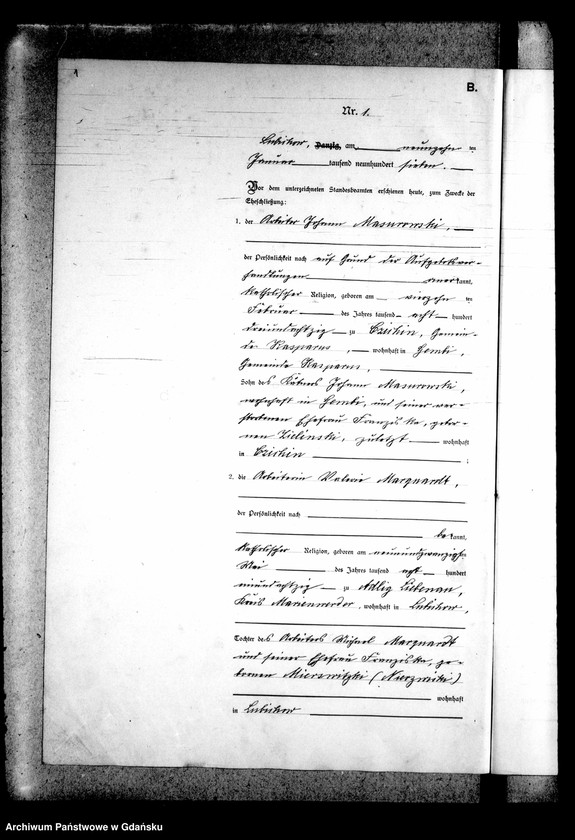 1
B.
Nr. 1.
Lubichow, Danzig, am neunzehn ten
Januar tausend neunhundert sieben.
Vor dem unterzeichneten Standesbeamten erschienen heute, zum Zwecke der
Eheschließung:
1. der Arbeiter Johann Masurowski,
der Persönlichkeit nach auf Grund der Aufgebotsver-
handlungen anerkannt,
katholischer Religion, geboren am vierzehn ten
Februar des Jahres tausend acht hundert
dreiundachtzig zu Czichin, Gemein-
de Kasparus, wohnhaft in Gembi,
Gemeinde Kasparus,
Sohn des Kätners Johann Masurowski,
wohnhaft in Gembi, und seiner ver-
storbenen Ehefrau Franziska, gebor-
nen Zielinski, zuletzt wohnhaft
in Czichin ;
2. die Arbeiterin Valerie Marquardt,
der Persönlichkeit nach
bekannt,
katholischer Religion, geboren am neunundzwanzigsten
Mai des Jahres tausend acht hundert
neunundachtzig zu Adlig Liebenau,
Kreis Marienwerder, wohnhaft in Lubichow,
Tochter des Arbeiters Michael Marquardt
und seiner Ehefrau Franziska, ge-
bornen Mierzwitzki (Nierzwicki)
wohnhaft
in Lubichow
Archiwum Państwowe w Gdańsku